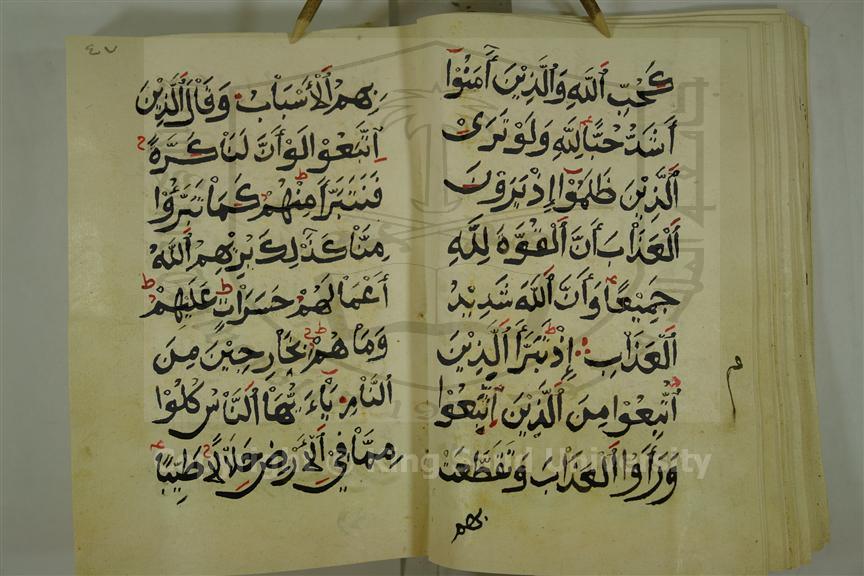 كَحُبِّ اللَّهِ وَالَّذِينَ آمَنُوا
أَشَدُّ حُبًّا لِلَّهِ وَلَوْ تَرَىٰ
الَّذِينَ ظَلَمُوا إِذْ يَرَوْنَ
الْعَذَابَ أَنَّ الْقُوَّةَ لِلَّهِ
جَمِيعًا وَأَنَّ اللَّهَ شَدِيدُ
الْعَذَابِ إِذْ تَبَرَّأَ الَّذِينَ
اتُّبِعُوا مِنَ الَّذِينَ اتَّبَعُوا
وَرَأَوُا الْعَذَابَ وَتَقَطَّعَتْ
بهم
م
٤٧
بِهِمُ الْأَسْبَابُ وَقَالَ الَّذِينَ
اتَّبَعُوا لَوْ أَنَّ لَنَا كَرَّةً
فَنَتَبَرَّأَ مِنْهُمْ كَمَا تَبَرَّءُوا
مِنَّا كَذَٰلِكَ يُرِيهِمُ اللَّهُ
أَعْمَالَهُمْ حَسَرَاتٍ عَلَيْهِمْ
وَمَا هُمْ بِخَارِجِينَ مِنَ
النَّارِ يَاءَيُّهَا النَّاسُ كُلُوا
مِمَّا فِي الْأَرْضِ حَلَالًا طَيِّبًا
King Saud University